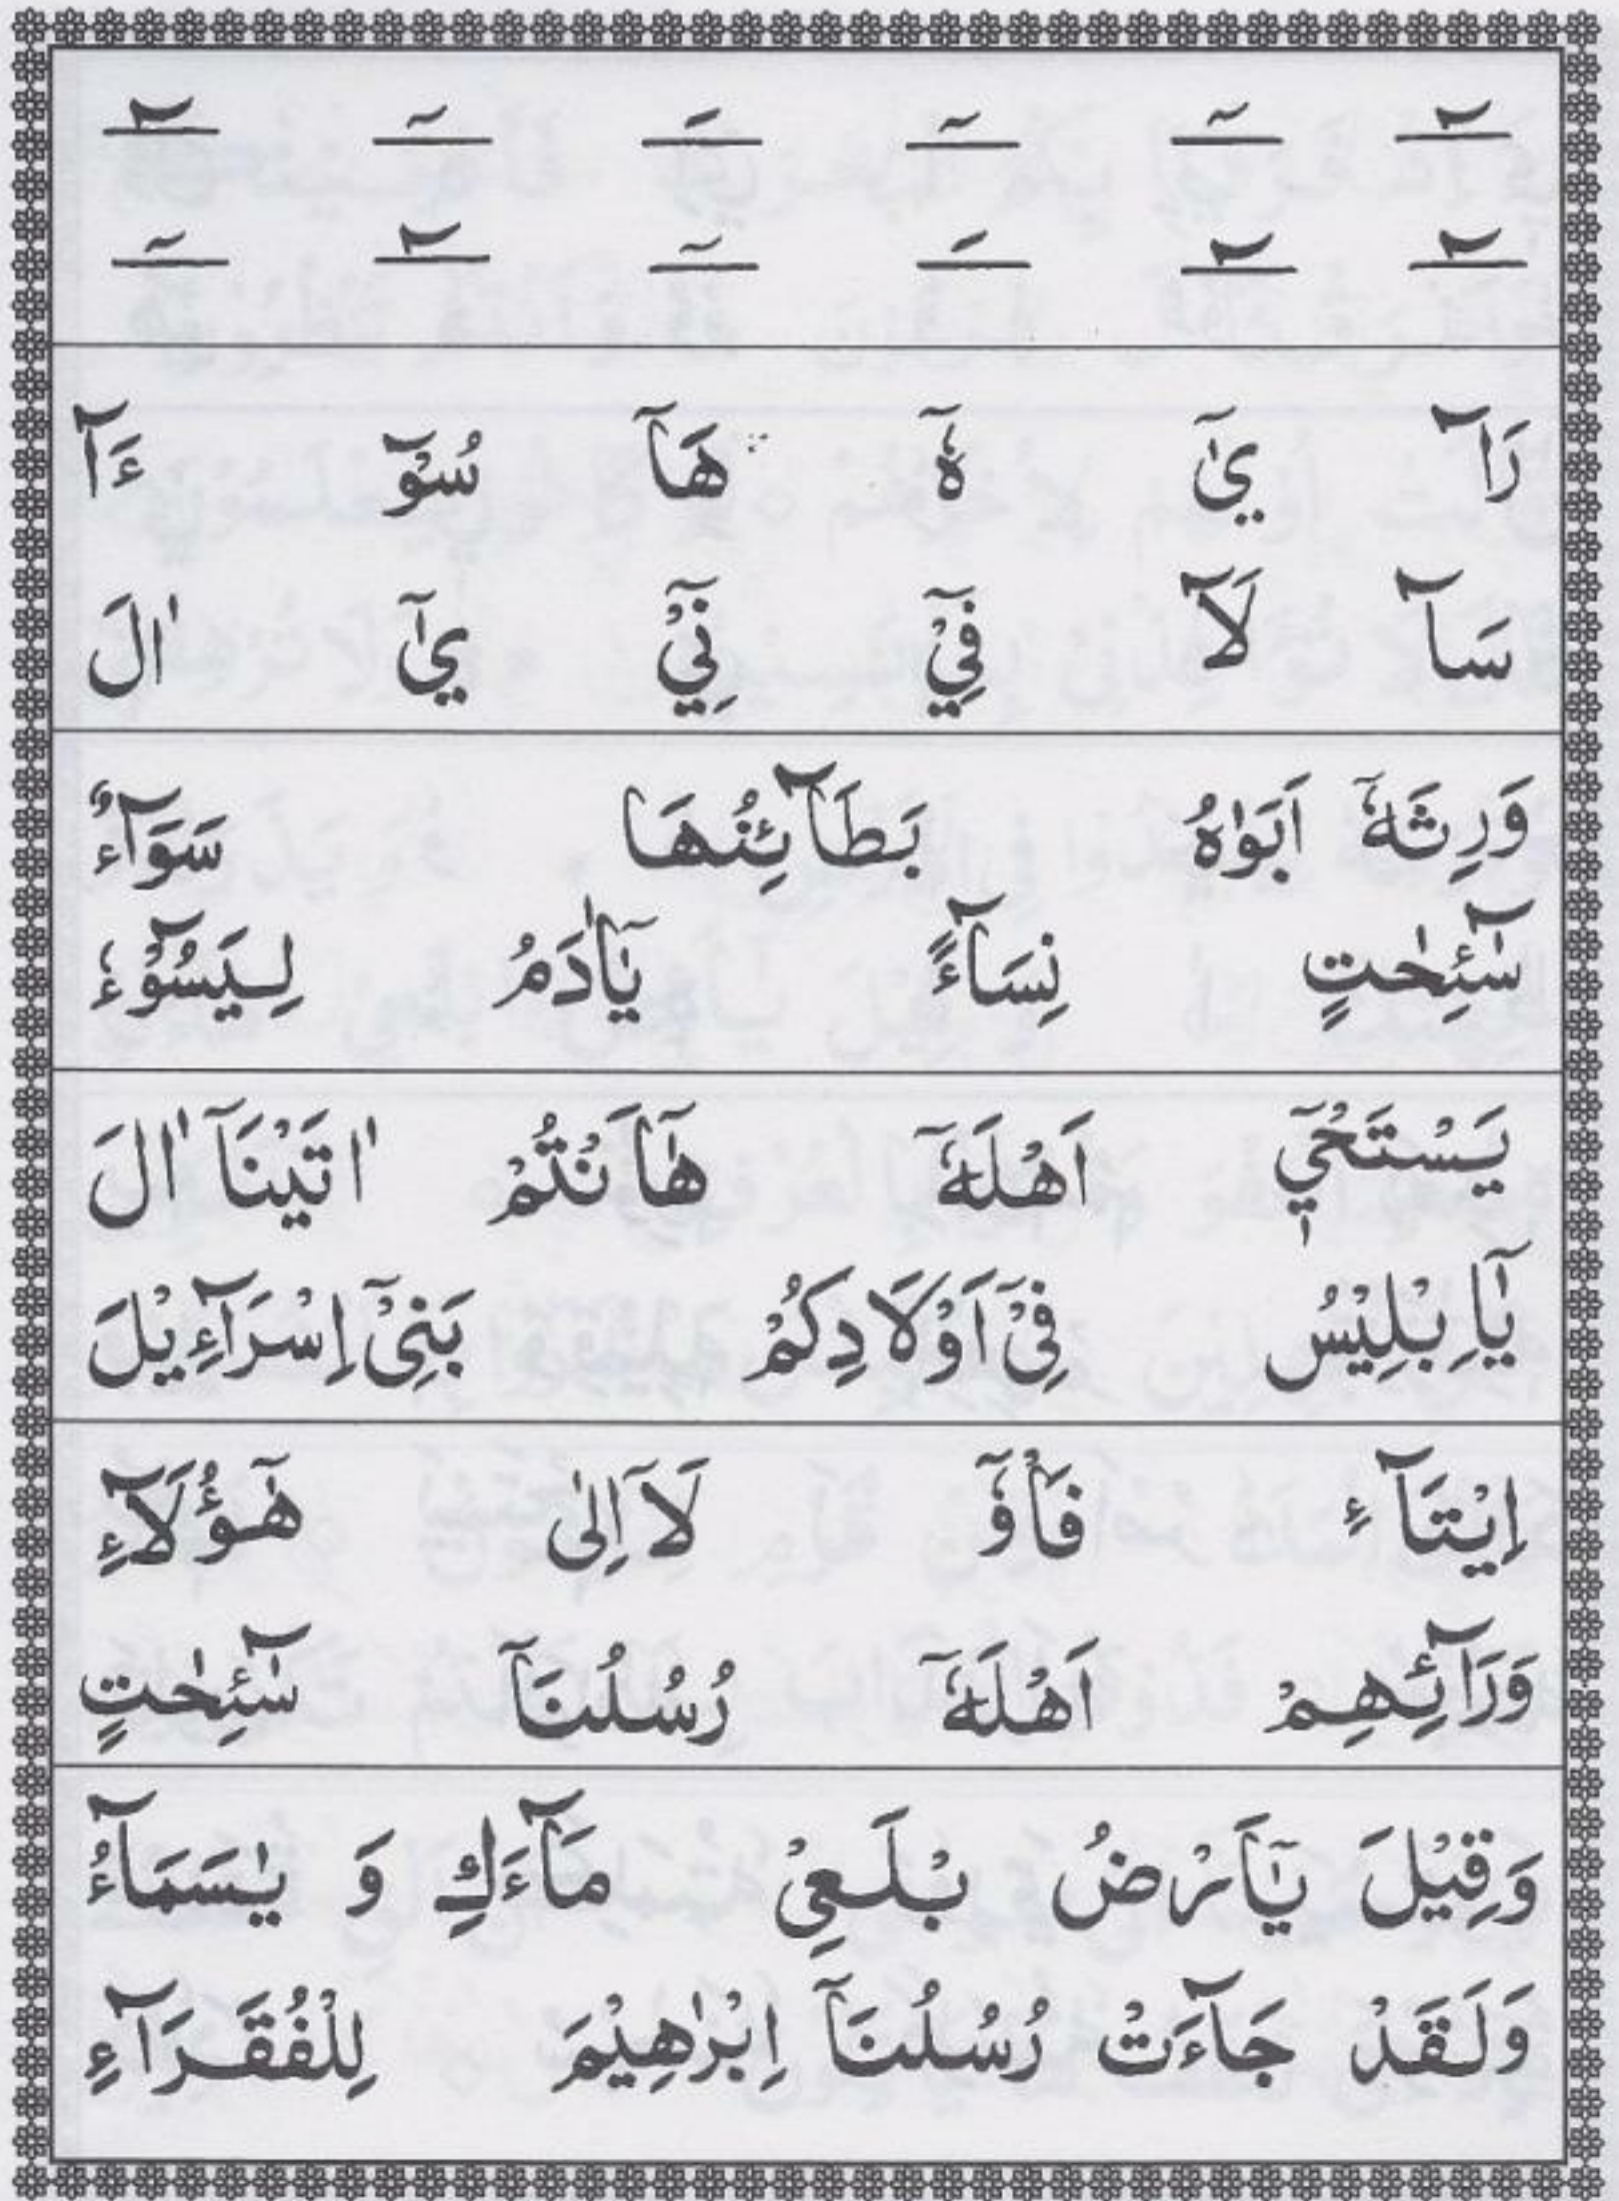 رَآ يٰٓ هٗٓ هَآ سُوْٓ ءَآ
سَآ لَآ فِيْٓ نِيْٓ يٰٓ اٰلَ
وَرِثَهٗٓ اَبَوٰهُ بَطَآئِنُهَا سَوَآءٌ
سٰٓئِحٰتٍ نِسَآءً يٰٓاٰدَمُ لِيَسُوْٓءٗ
يَسْتَحْيٖٓ اَهْلَهٗٓ هٰٓاَنْتُمْ اٰتَيْنَآ اٰلَ
يٰٓاِبْلِيْسُ فِيْٓ اَوْلَادِكُمْ بَنِيْٓ اِسْرَآءِيْلَ
اِيْتَآءِ فَاْوٗٓ لَآ اِلٰى هٰٓؤُلَآءِ
وَرَآئِهِمْ اَهْلَهٗٓ رُسُلُنَآ سٰٓئِحٰتٍ
وَقِيْلَ يٰٓاَرْضُ بْلَعِيْ مَآءَكِ وَ يٰسَمَآءُ
وَلَقَدْ جَآءَتْ رُسُلُنَآ اِبْرٰهِيْمَ لِلْفُقَرَآءِ